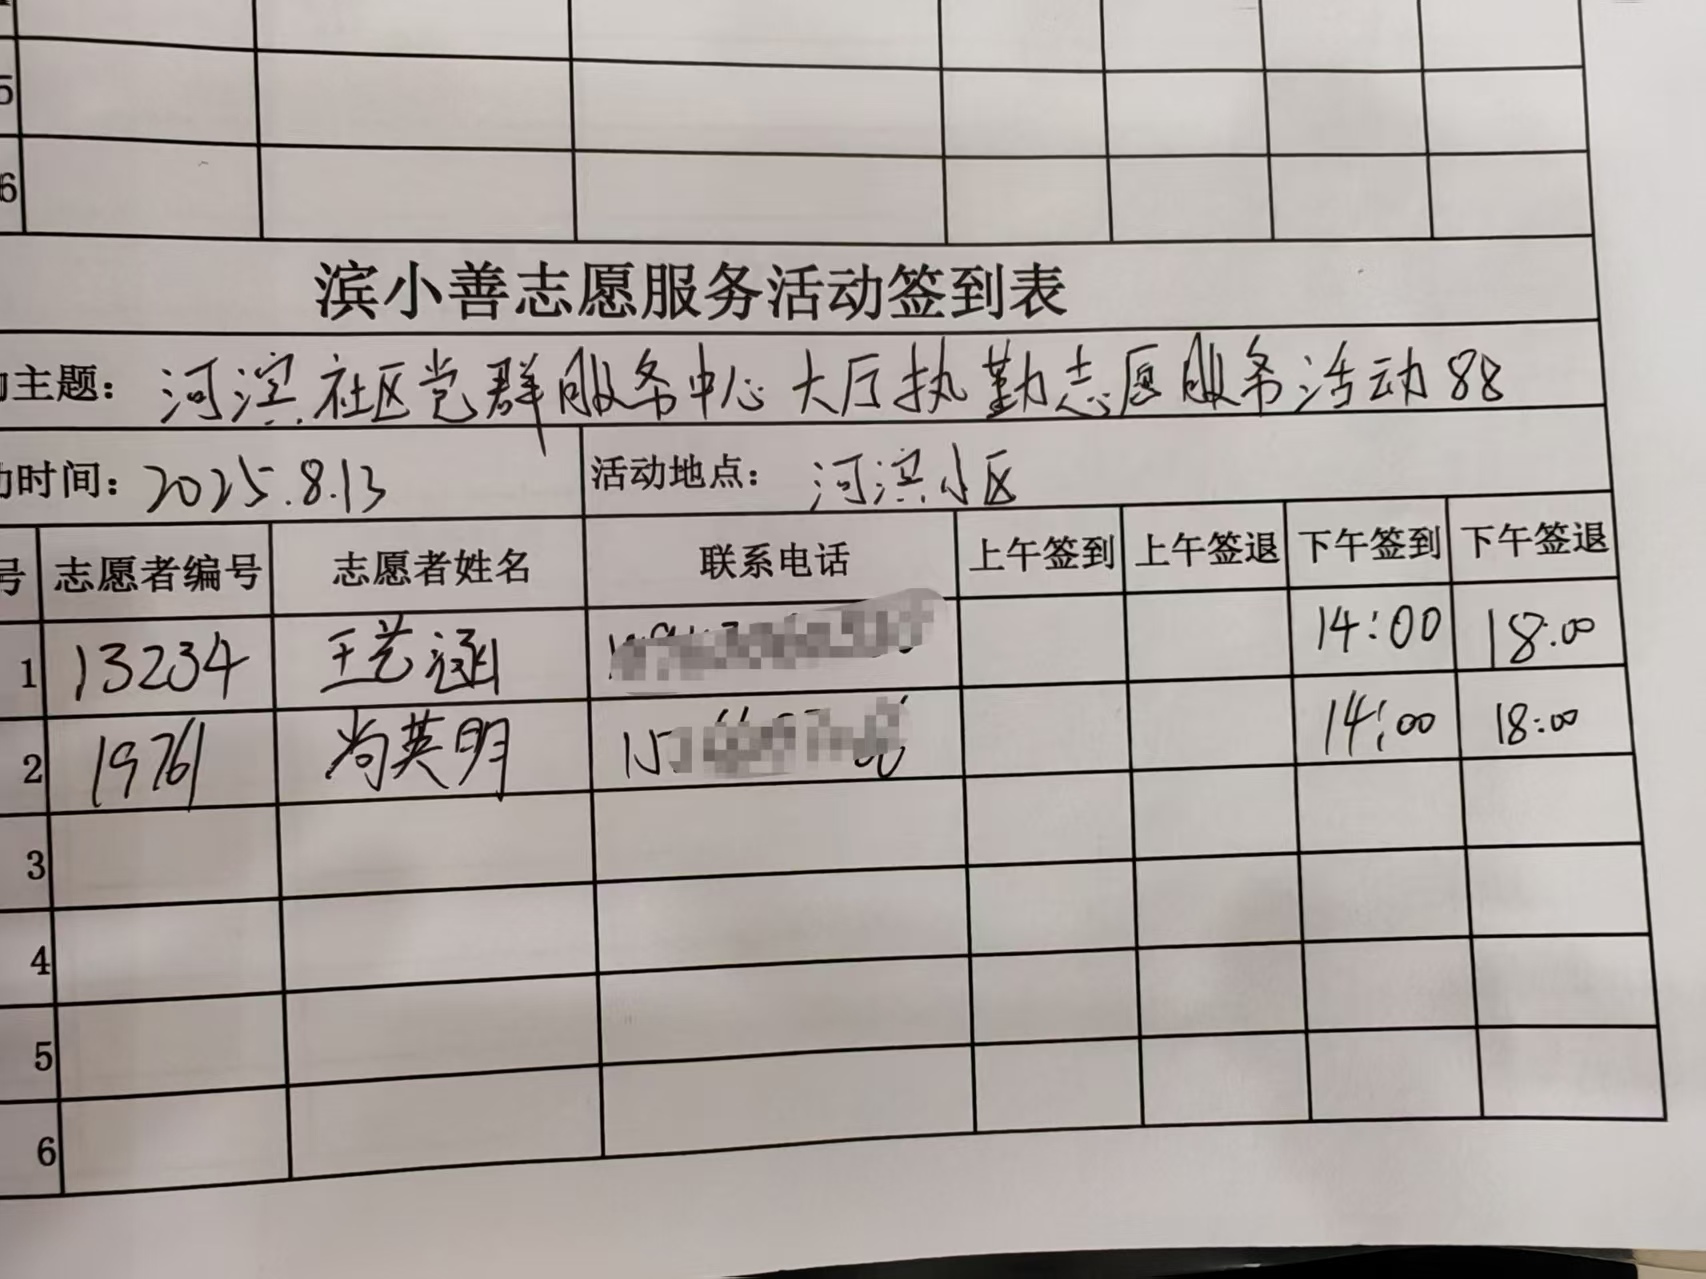 5
6
滨小善志愿服务活动签到表
动主题：河滨社区党群服务中心大厅执勤志愿服务活动88
动时间：2025.8.13 活动地点：河滨小区
号 志愿者编号 志愿者姓名 联系电话 上午签到 上午签退 下午签到 下午签退
1 13234 王艺涵 14:00 18:00
2 19761 尚英明 15 14:00 18:00
3
4
5
6